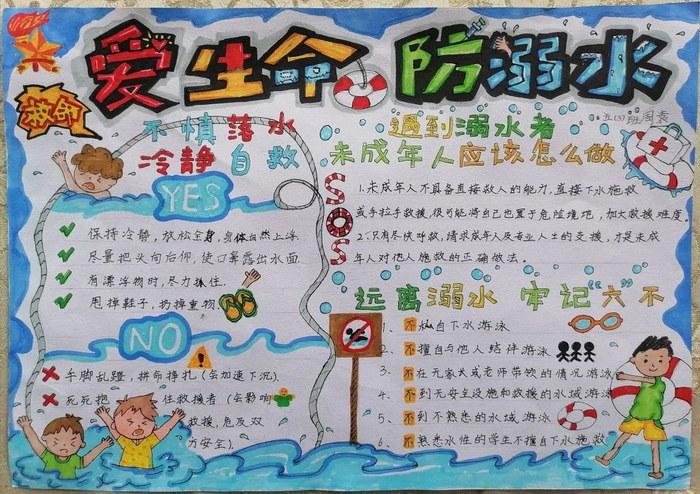 爱生命 防溺水
救命
五(3)班周袁
不慎落水
冷静自救
YES
保持冷静,放松全身,身体自然上浮.
尽量把头向后仰,使口鼻露出水面.
有漂浮物时,尽力抓住.
甩掉鞋子,扔掉重物.
NO
手脚乱蹬,拼命挣扎(会加速下沉).
死死抱 住救援者(会影响
救援,危及双
方安全).
遇到溺水者
未成年人应该怎么做
SOS
1.未成年人不具备直接救人的能力,直接下水施救
或手拉手救援,很可能将自己也置于危险境地,加大救援难度.
2.只有尽快呼救,请求成年人及专业人士的支援,才是未成
年人对他人施救的正确做法.
远离溺水 牢记“六”不
1、不私自下水游泳
2、不擅自与他人结伴游泳
3、不在无家长或老师带领的情况游泳
4、不到无安全设施和救援的水域游泳
5、不到不熟悉的水域游泳
6、不熟悉水性的学生不擅自下水施救